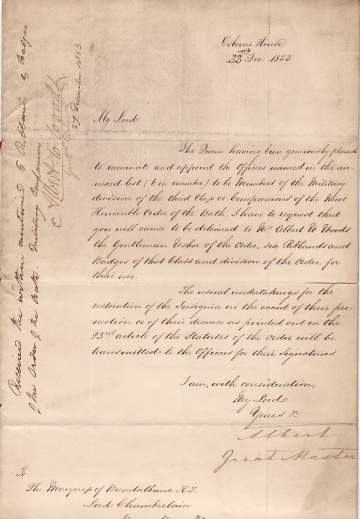 Osborne House
22nd Dec. 1853
My Lord
The Queen having been graciously pleased
to nominate and appoint the Officers named in the an-
nexed list (6 in number) to be Members of the Military
division of the third Class or Companions of the Most
Honorable Order of the Bath, I have to request that
you will cause to be delivered to Mr Albert W. Woods
the Gentleman Usher of the Order, six Ribands and
Badges of that Class and division of the Order, for
their use.
The usual undertakings for the
restoration of the Insignia in the event of their pro-
motion or of their decease as pointed out in the
23rd article of the Statutes of the Order will be
transmitted to the Officers for their signatures
I am, with consideration,
My Lord
Yours &c
Albert
Great Master
To
The Marquess of Breadalbane K.T.
Lord Chamberlain
Received the within mentioned 6 Ribands & Badges
of the Order of the Bath Military Companions
Albert W. Woods
27 December 1853